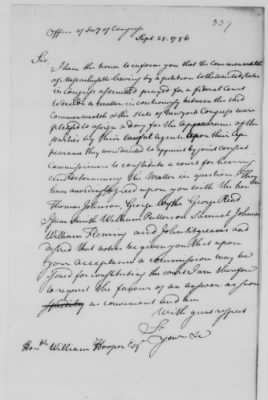 337
Office of Secy of Congress
Sept 28. 1786
Sir
I have the honor to inform you that the commonwealth
of Massachusetts having by a petition to the United States
in Congress assembled prayed for a federal Court
to decide a matter in controversy between the said
commonwealth & the state of New York Congress were
pleased to assign a day for the Appearance of the
parties by their lawful agents. Upon their Ap-
pearance they were directed to appoint by joint consent
Commissioners to constitute a court for hearing
and determining the Matter in question. They
have accordingly agreed upon you with the honble
Thomas Johnson, George Wythe George Read
Isaac Smith William Patterson Samuel Johnson
William Fleming and John Sitgreaves and
desired that notice be given you that upon
your acceptance a commission may be
issued for constituting the court. I am therefore
to request the favour of an answer as soon
as convenient and have
With great respect
Sr
Your &c
Honble William Hooper Esqr